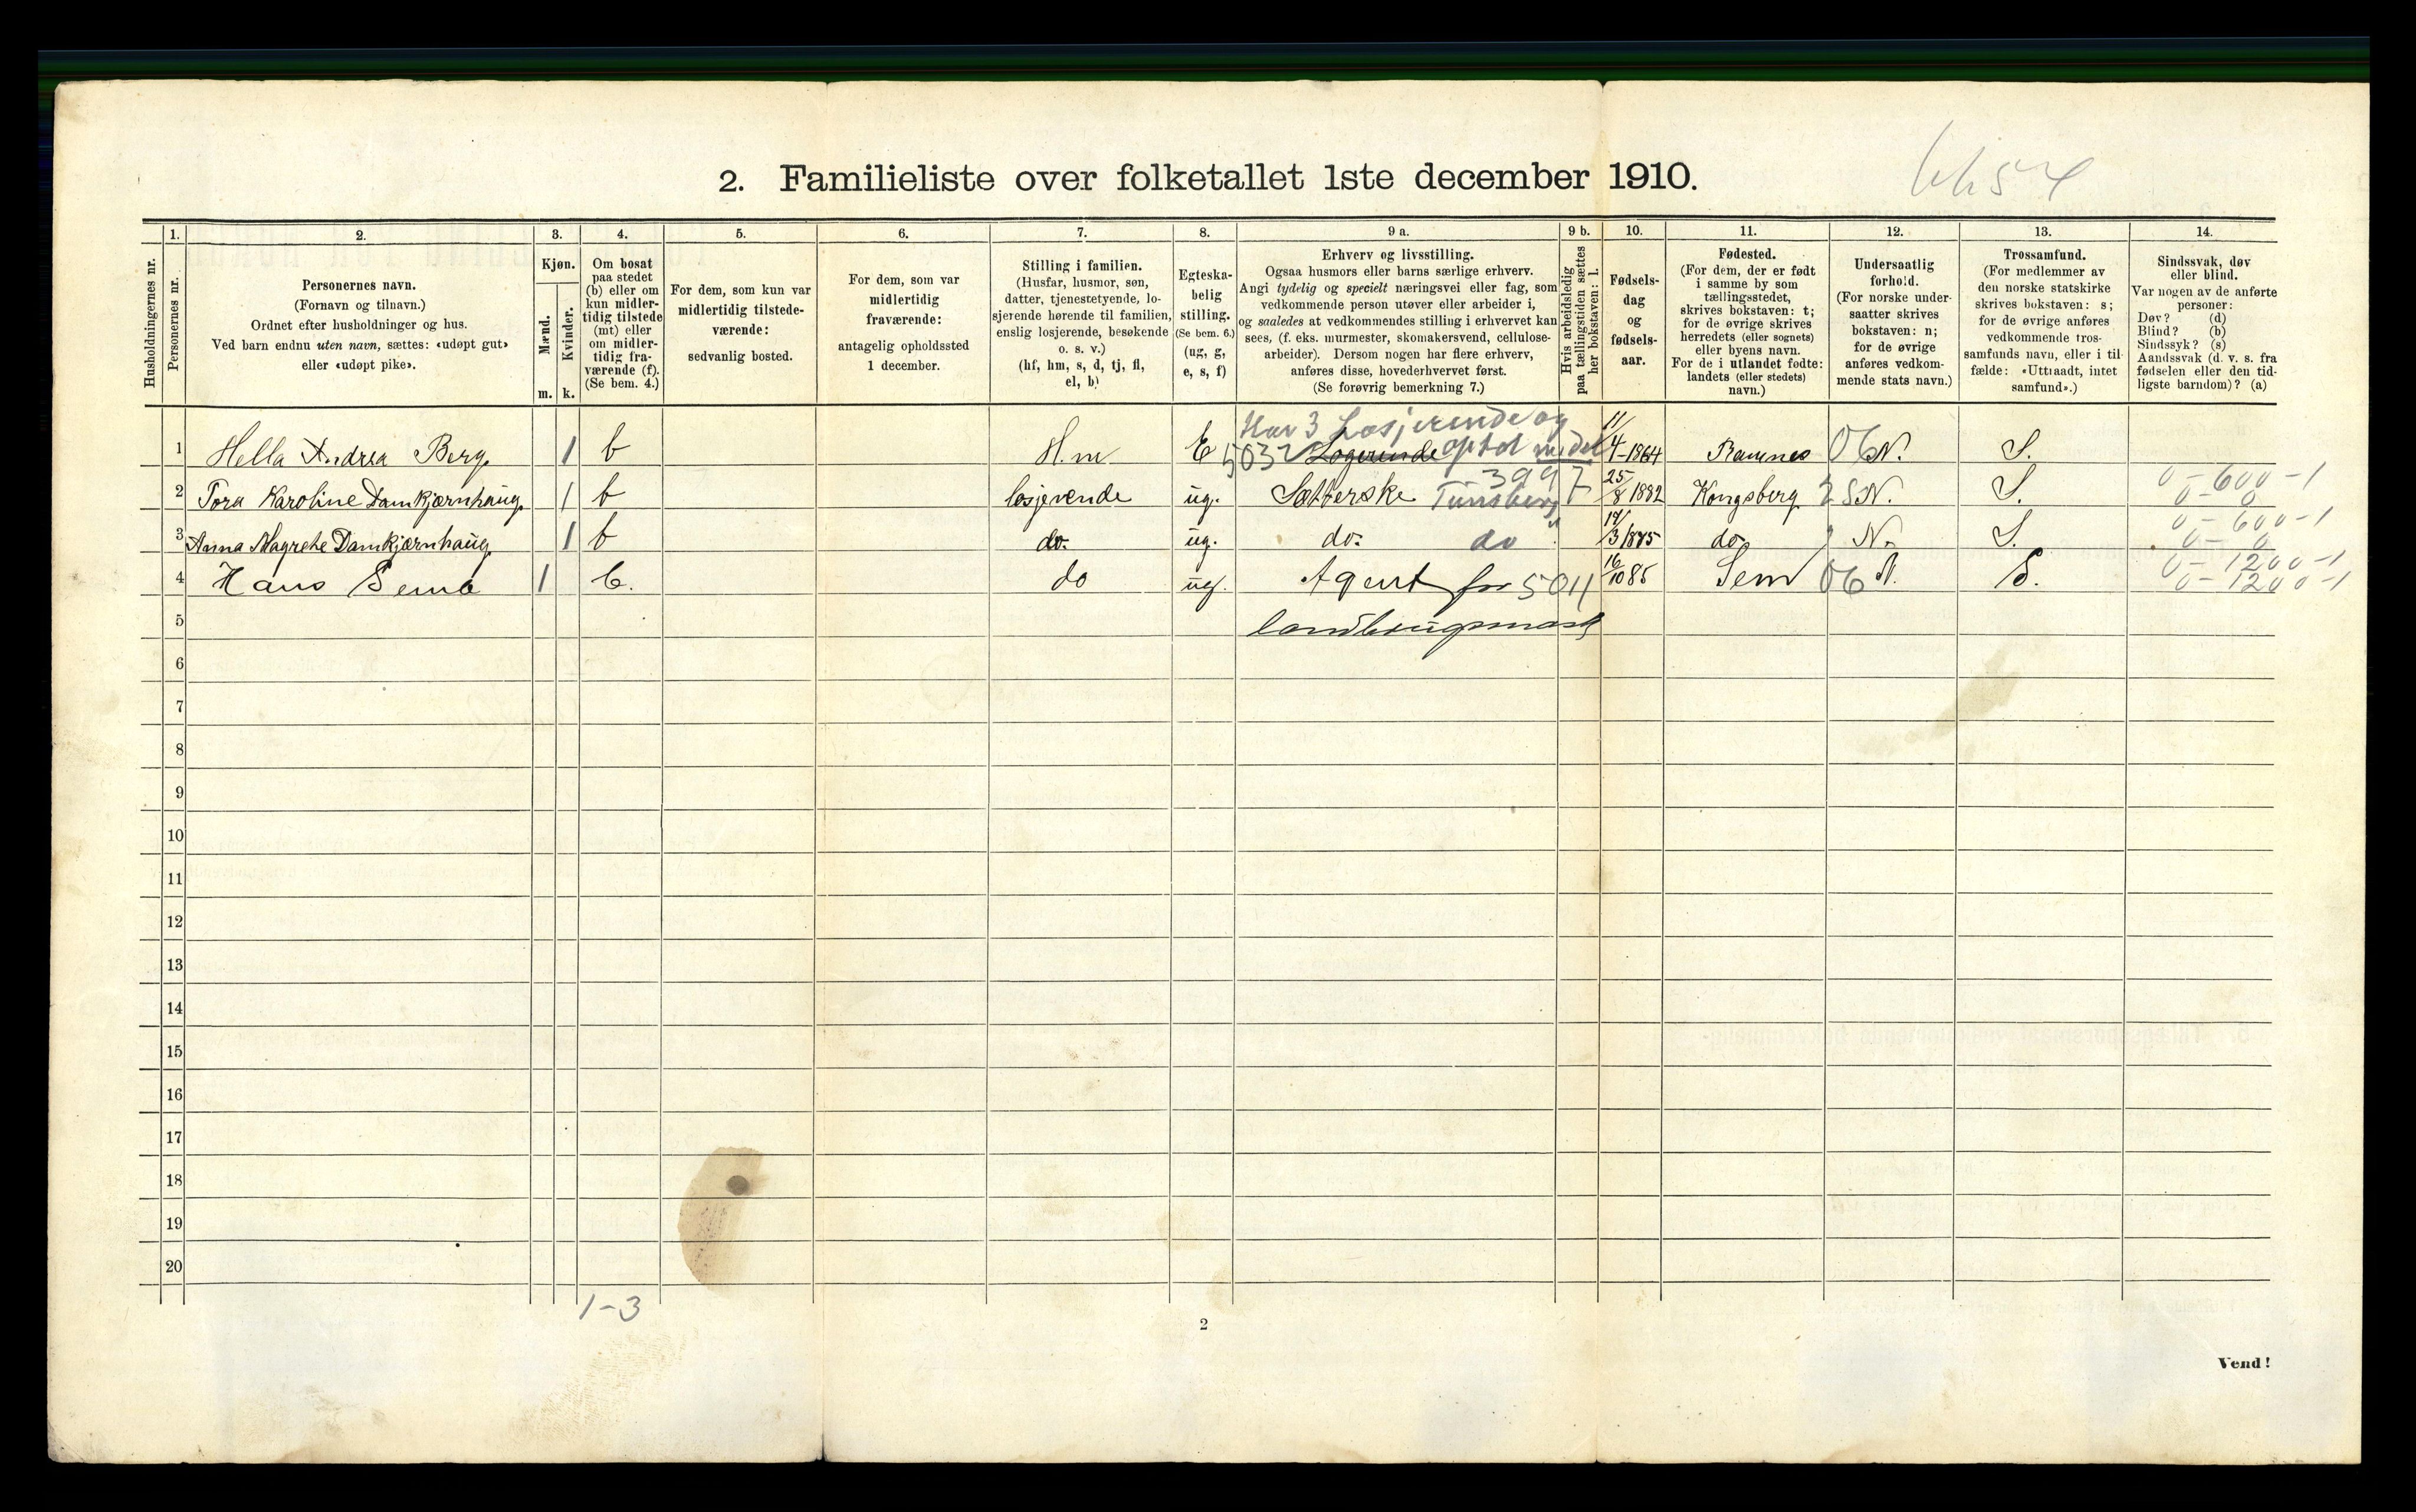 2. Familieliste over folketallet 1ste december 1910.
1. 2. 3. 4. 5. 6. 7. 8. 9 a. 9 b. 10. 11. 12. 13. 14.
Husholdningernes nr.
Personernes nr.
Personernes navn.
(Fornavn og tilnavn.)
Ordnet efter husholdninger og hus.
Ved barn endnu uten navn, sættes: «udøpt gut»
eller «udøpt pike».
Kjøn.
Mænd.
Kvinder.
m. k.
Om bosat
paa stedet
(b) eller om
kun midler-
tidig tilstede
(mt) eller
om midler-
tidig fra-
værende (f).
(Se bem. 4.)
For dem, som kun var
midlertidig tilstede-
værende:
sedvanlig bosted.
For dem, som var
midlertidig
fraværende:
antagelig opholdssted
1 december.
Stilling i familien.
(Husfar, husmor, søn,
datter, tjenestetyende, lo-
sjerende hørende til familien,
enslig losjerende, besøkende
o. s. v.)
(hf, hm, s, d, tj, fl,
el, b)
Egteska-
belig
stilling.
(Se bem. 6.)
(ug, g,
e, s, f)
Erhverv og livsstilling.
Ogsaa husmors eller barns særlige erhverv.
Angi tydelig og specielt næringsvei eller fag, som
vedkommende person utøver eller arbeider i,
og saaledes at vedkommendes stilling i erhvervet kan
sees, (f. eks. murmester, skomakersvend, cellulose-
arbeider). Dersom nogen har flere erhverv,
anføres disse, hovederhvervet først.
(Se forøvrig bemerkning 7.)
Hvis arbeidsledig
paa tællingstiden sættes
her bokstaven: l.
Fødsels-
dag
og
fødsels-
aar.
Fødested.
(For dem, der er født
i samme by som
tællingsstedet,
skrives bokstaven: t;
for de øvrige skrives
herredets (eller sognets)
eller byens navn.
For de i utlandet fødte:
landets (eller stedets)
navn.)
Undersaatlig
forhold.
(For norske under-
saatter skrives
bokstaven: n;
for de øvrige
anføres vedkom-
mende stats navn.)
Trossamfund.
(For medlemmer av
den norske statskirke
skrives bokstaven: s;
for de øvrige anføres
vedkommende tros-
samfunds navn, eller i til-
fælde: «Uttraadt, intet
samfund».)
Sindssvak, døv
eller blind.
Var nogen av de anførte
personer:
Døv? (d)
Blind? (b)
Sindssyk? (s)
Aandssvak (d. v. s. fra
fødselen eller den tid-
ligste barndom)? (a)
Har 3 Losjerende og
1 Hella Andrea Berg. 1 b H.m E 5032 Logerende 11/4-1864 Ramnes 06 N. S.
3997 0-600-1
2 Tora Karoline Damkjærnhaug. 1 b losjerende ug. Sætterske Tunsberg 25/8 1882 Kongsberg N. S. 0-0
0-600-1
3 Anna Magrete Damkjærnhaug. 1 b do. ug. do. do 14/3 1875 do. N. S. 0-0
0-1200-1
4 Hans Semb 1 b. do ug. Agent for 5011 16/10 85 Sem 06 N. S. 0-1200-1
5 landbrugsmask
6
7
8
9
10
11
12
13
14
15
16
17
18
19
20
1-3
2
Vend!